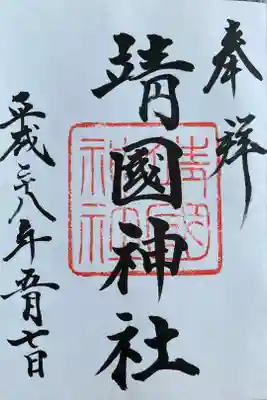 奉拝
靖國神社
靖國神社
平成二十八年五月七日